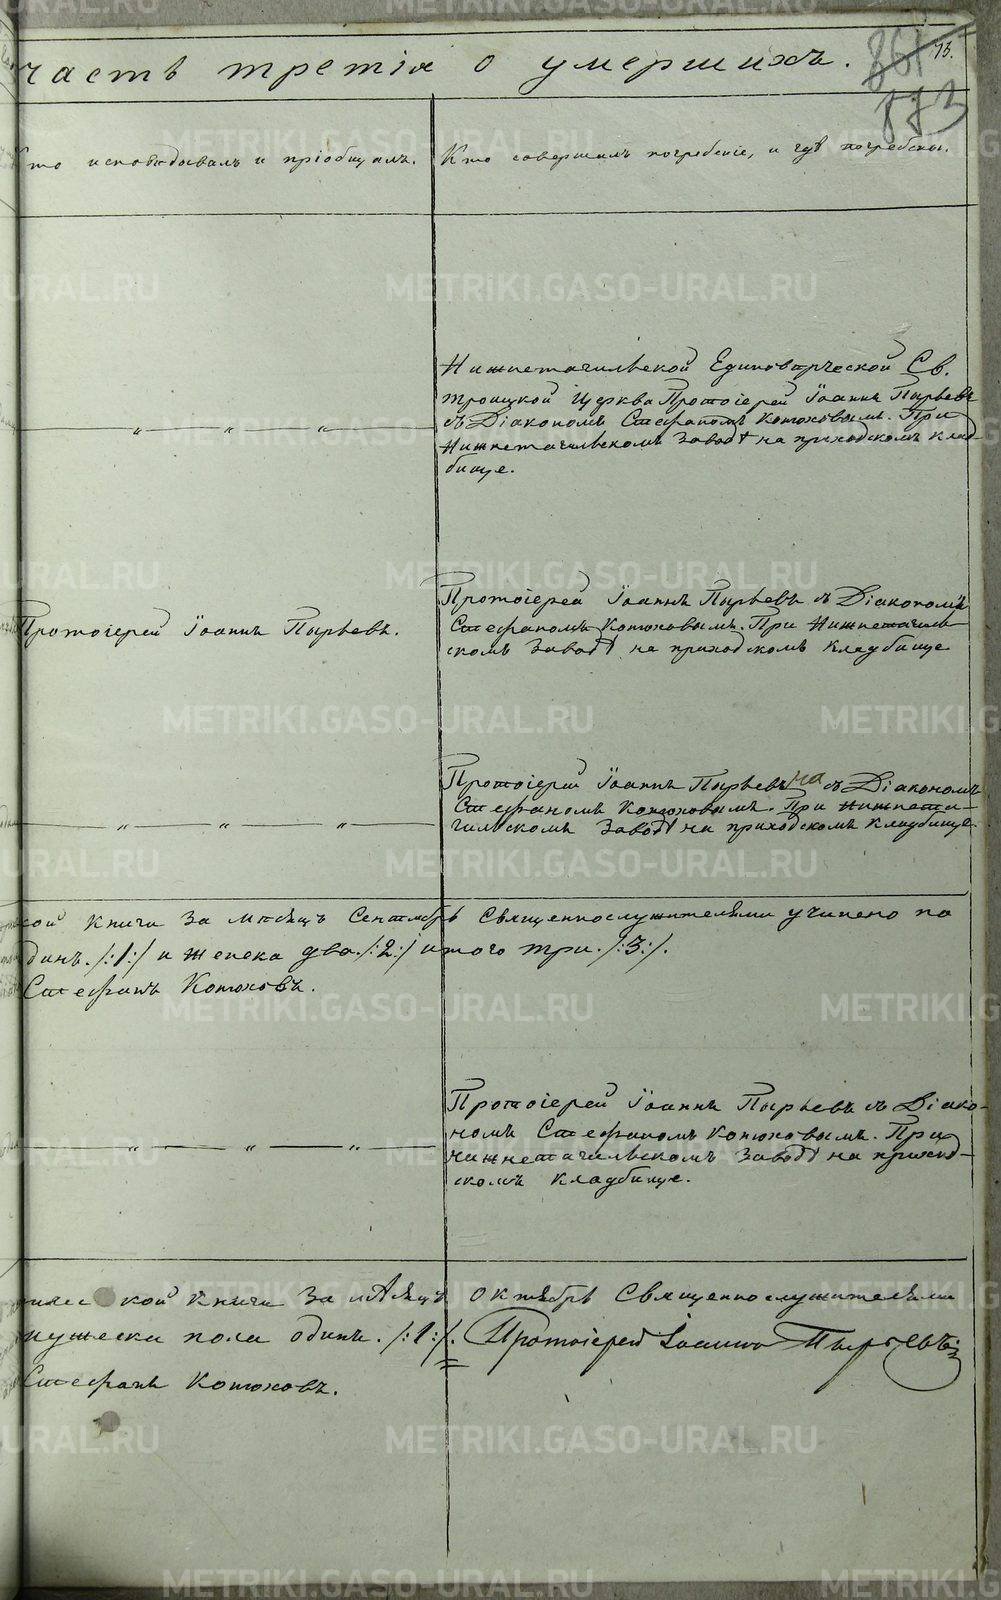 часть третія о умершихъ.
861 73.
873
Кто исповѣдывалъ и пріобщалъ.
Кто совершалъ погребеніе, и гдѣ погребены.
Нижнетагильской Единовѣрческой Св.
троицкой Церкви Протоіерей Іоаннъ Пырьевъ
съ Діакономъ Стефаномъ Конюховымъ. При
Нижнетагильскомъ Заводѣ на приходскомъ клад-
бище.
— „ — „ — „ —
Протоіерей Іоаннъ Пырьевъ.
Протоіерей Іоаннъ Пырьевъ съ Діакономъ
Стефаномъ Конюховымъ. При Нижнетагиль-
скомъ Заводѣ на приходскомъ кладбище
— „ — „ — „ —
Протоіерей Іоаннъ Пырьевъ на съ Діакономъ
Стефаномъ Конюховымъ. При Нижнета-
гильскомъ Заводѣ на приходскомъ кладбище
кой книги за мѣсяцъ Сентябрь Священнослужителями учинено по
динъ ./:1:/ и женска два ./:2:/ итого три ./:3:/.
Стефанъ Конюховъ.
— „ — „ — „ —
Протоіерей Іоаннъ Пырьевъ съ Діако-
номъ Стефаномъ Конюховымъ. При
нижнетагильскомъ Заводѣ на приход-
скомъ кладбище.
кой книги за мѣсяцъ Октябрь Священнослужителями
мужеска пола одинъ. /:1:/. Протоіерей Іоаннъ Пырьевъ
Стефанъ Конюховъ.
METRIKI.GASO-URAL.RU